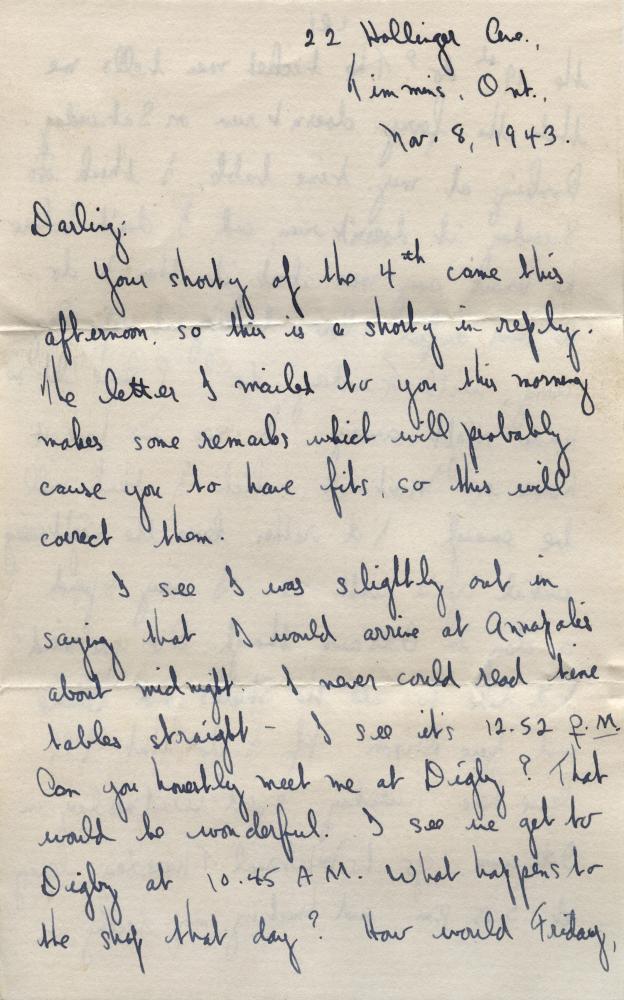 22 Hollinger Ave.,
Timmins, Ont.,
Nov. 8, 1943.
Darling:
Your shorty of the 4th came this
afternoon, so this is a shorty in reply.
The letter I mailed to you this morning
makes some remarks which will probably
cause you to have fits, so this will
correct them.
I see I was slightly out in
saying that I would arrive at Annapolis
about midnight. I never could read time
tables straight - I see it's 12.52 P.M.
Can you honestly meet me at Digby? That
would be wonderful. I see we get to
Digby at 10.45 A.M. What happens to
the shop that day? How would Friday,